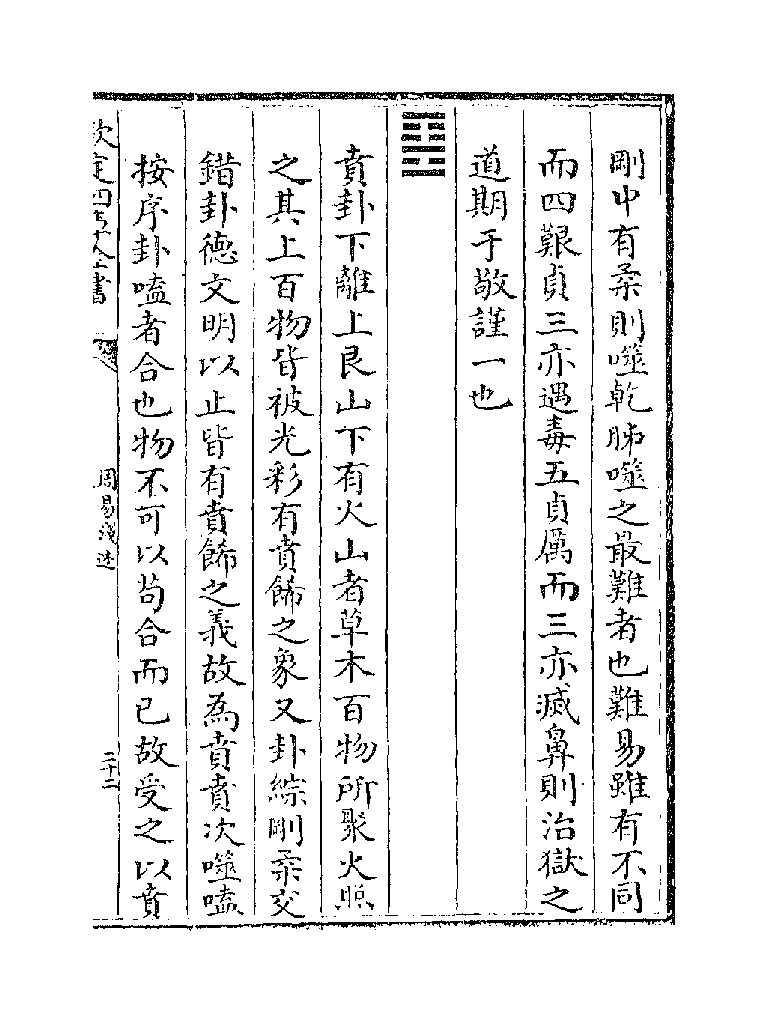 剛中有柔則噬乾胏噬之最難者也難易雖有不同
而四艱貞三亦遇毒五貞厲而三亦滅鼻則治獄之
道期于敬謹一也
䷕
賁卦下離上艮山下有火山者草木百物所聚火照
之其上百物皆被光彩有賁餙之象又卦綜剛柔交
錯卦德文明以止皆有賁餙之義故為賁賁次噬嗑
按序卦嗑者合也物不可以茍合而已故受之以賁
欽定四庫全書
周易淺述
二十二